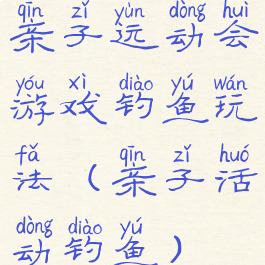 qīn zǐ yùn dòng huì
亲子运动会
yóu xì diào yú wán
游戏钓鱼玩
fǎ qīn zǐ huó
法(亲子活
dòng diào yú
动钓鱼)